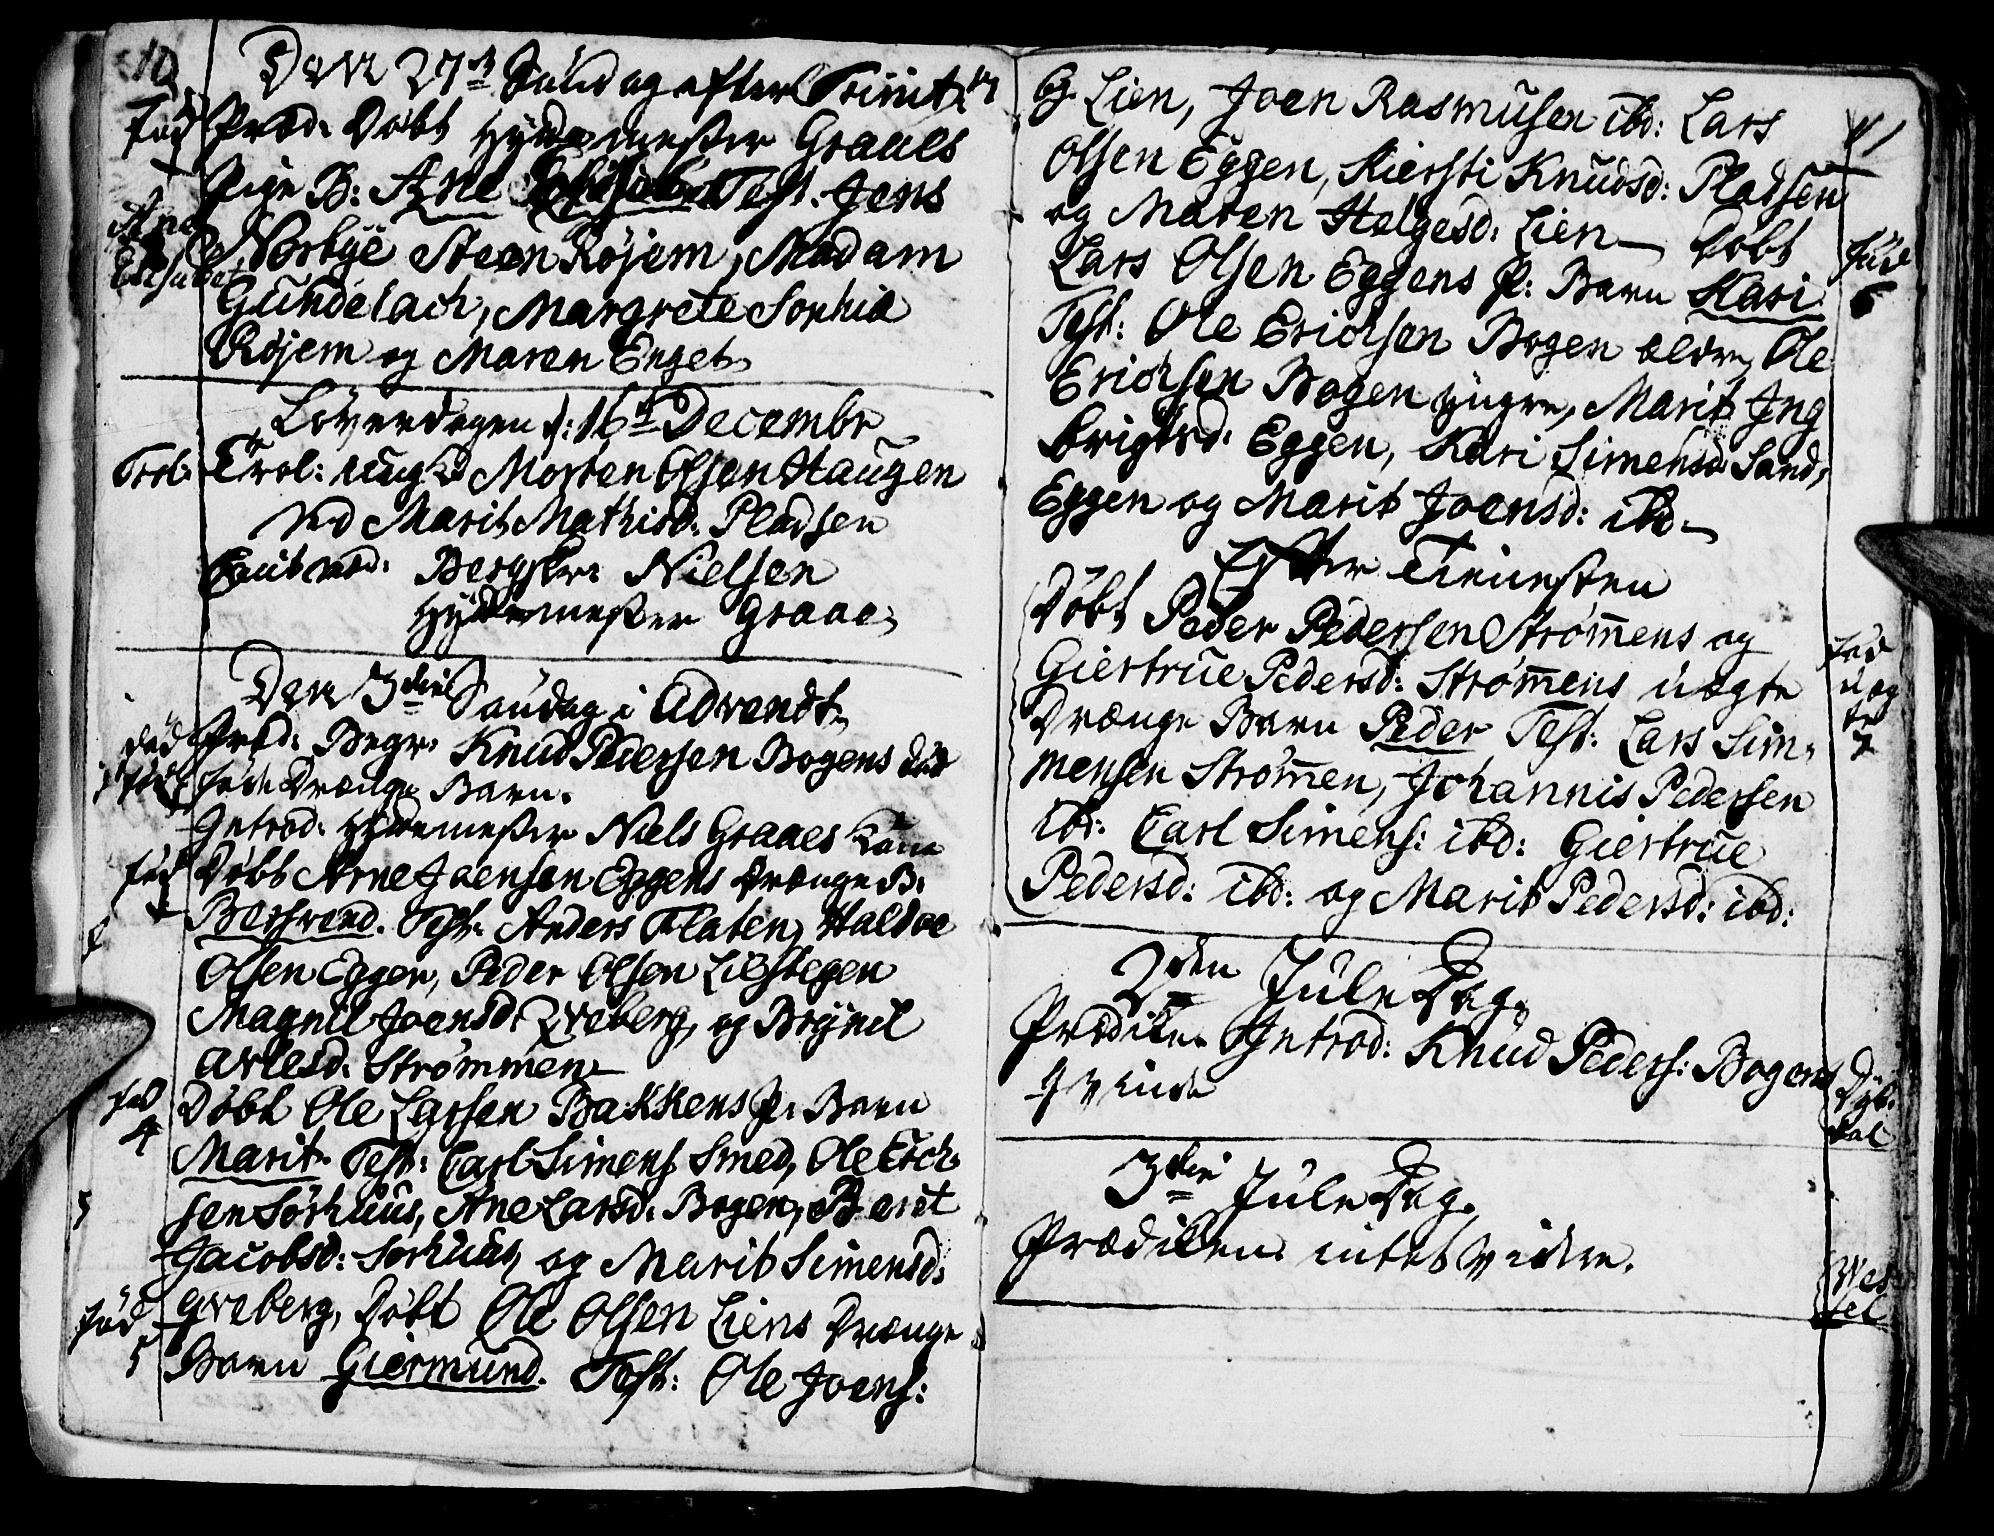 10
Den 27de Søndag efter Trinit:
Fød Præd: Døbt Hyttemester Graaes
Pige B: Ane Elisabet Test. Jens
Ane Elisabet
Norbye Steen Röjem, Madam
Gundelach, Margrete Sophia
Röjem og Maren Enget
Löverdagen d: 16de Decembr
Trol. Trol: ungk: Morten Olsen Haugen
ved Marit Mathisd: Pladsen
Cavit med: Bergskr: Nielsen
Hyttemester Graae
Den 3die Søndag i Advendt
død Præd: Begr: Knud Pedersen Bogens död
fød föde Drænge Barn.
Introd: Hyttemester Niels Graaes Kone
fød Døbt Arne Joensen Eggens Drænge B:
Bersvend. Test: Anders Flaten, Haldoe
Olsen Eggen, Peder Olsen Liestegen
Magnil Joensd: Qveberg, og Brynil
Arlesd: Strømmen
fød 4 Døbt Ole Larsen Bakkens p: Barn
Marit. Test: Carl Simens Smed, Ole Erich-
sen Sørhuus, Ane Larsd: Bogen, Beret
Jacobsd: Sørhuus, og Marit Simensd:
Qveberg, Døbt Ole Olsen Liens Drænge
fød 5 Barn Giermund. Test: Ole Joens:
11
Lien, Joen Rasmusen ibd: Lars
Olsen Eggen, Kiersti Knudsd: Pladsen
og Maren Helgesd: Lien Døbt
Lars Olsen Eggens p: Barn Kari fød 6
Test: Ole Erichsen Bogen ældre, Ole
Erichsen Bogen yngre, Marit Ing
brigtsd: Eggen, Kari Simensd: Sand,
Eggen og Marit Joensd: ibd:
Efter Tienesten
Døbt Peder Pedersen Strömens og
Giertrue Pedersd: Strömens uægte fød uæg te 7
Drænge Barn Peder Test: Lars Sim-
mensen Strömen, Johannis Pedersen
ibd: Carl Simens: ibd: Giertrue
Pedersd: ibd: og Marit Pedersd: ibd:
2den Jule Dag.
Prædiken Introd: Knud Peders: Bogens
Qvinde
Dyb: dal
3die Jule Dag.
Prædiken intet videre.
Wes sel